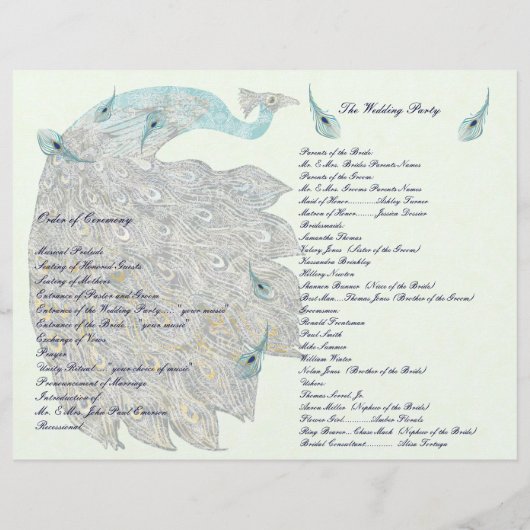 Order of Ceremony
Musical Prelude
Seating of Honored Guests
Seating of Mothers
Entrance of Pastor and Groom
Entrance of the Wedding Party....." your music"
Entrance of the Bride....." your music"
Exchange of Vows
Prayer
Unity Ritual...."your choice of music"
Pronouncement of Marriage
Introduction of
Mr. & Mrs. John Paul Emerson
Recessional
The Wedding Party
Parents of the Bride:
Mr. & Mrs. Brides Parents Names
Parents of the Groom:
Mr. & Mrs. Grooms Parents Names
Maid of Honor............Ashley Turner
Matron of Honor........Jessica Dossier
Bridesmaids:
Samantha Thomas
Valery Jones (Sister of the Groom)
Kassandra Brinkley
Hillary Newton
Shannon Bunner (Niece of the Bride)
Best Man....Thomas Jones (Brother of the Groom)
Groomsmen:
Ronald Frontzman
Paul Smith
Mike Summer
William Winter
Nolan Jones (Brother of the Bride)
Ushers:
Thomas Sorrel, Jr.
Aaron Miller (Nephew of the Bride)
Flower Girl............Amber Florals
Ring Bearer...Chase Mark (Nephew of the Bride)
Bridal Consultant............ Alisa Tortuga